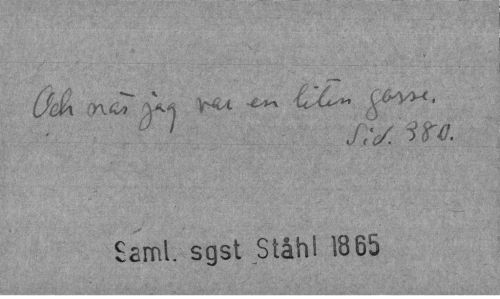 Och när jag var en liten gosse.
Sid. 380.
Saml. sgst Ståhl 1865